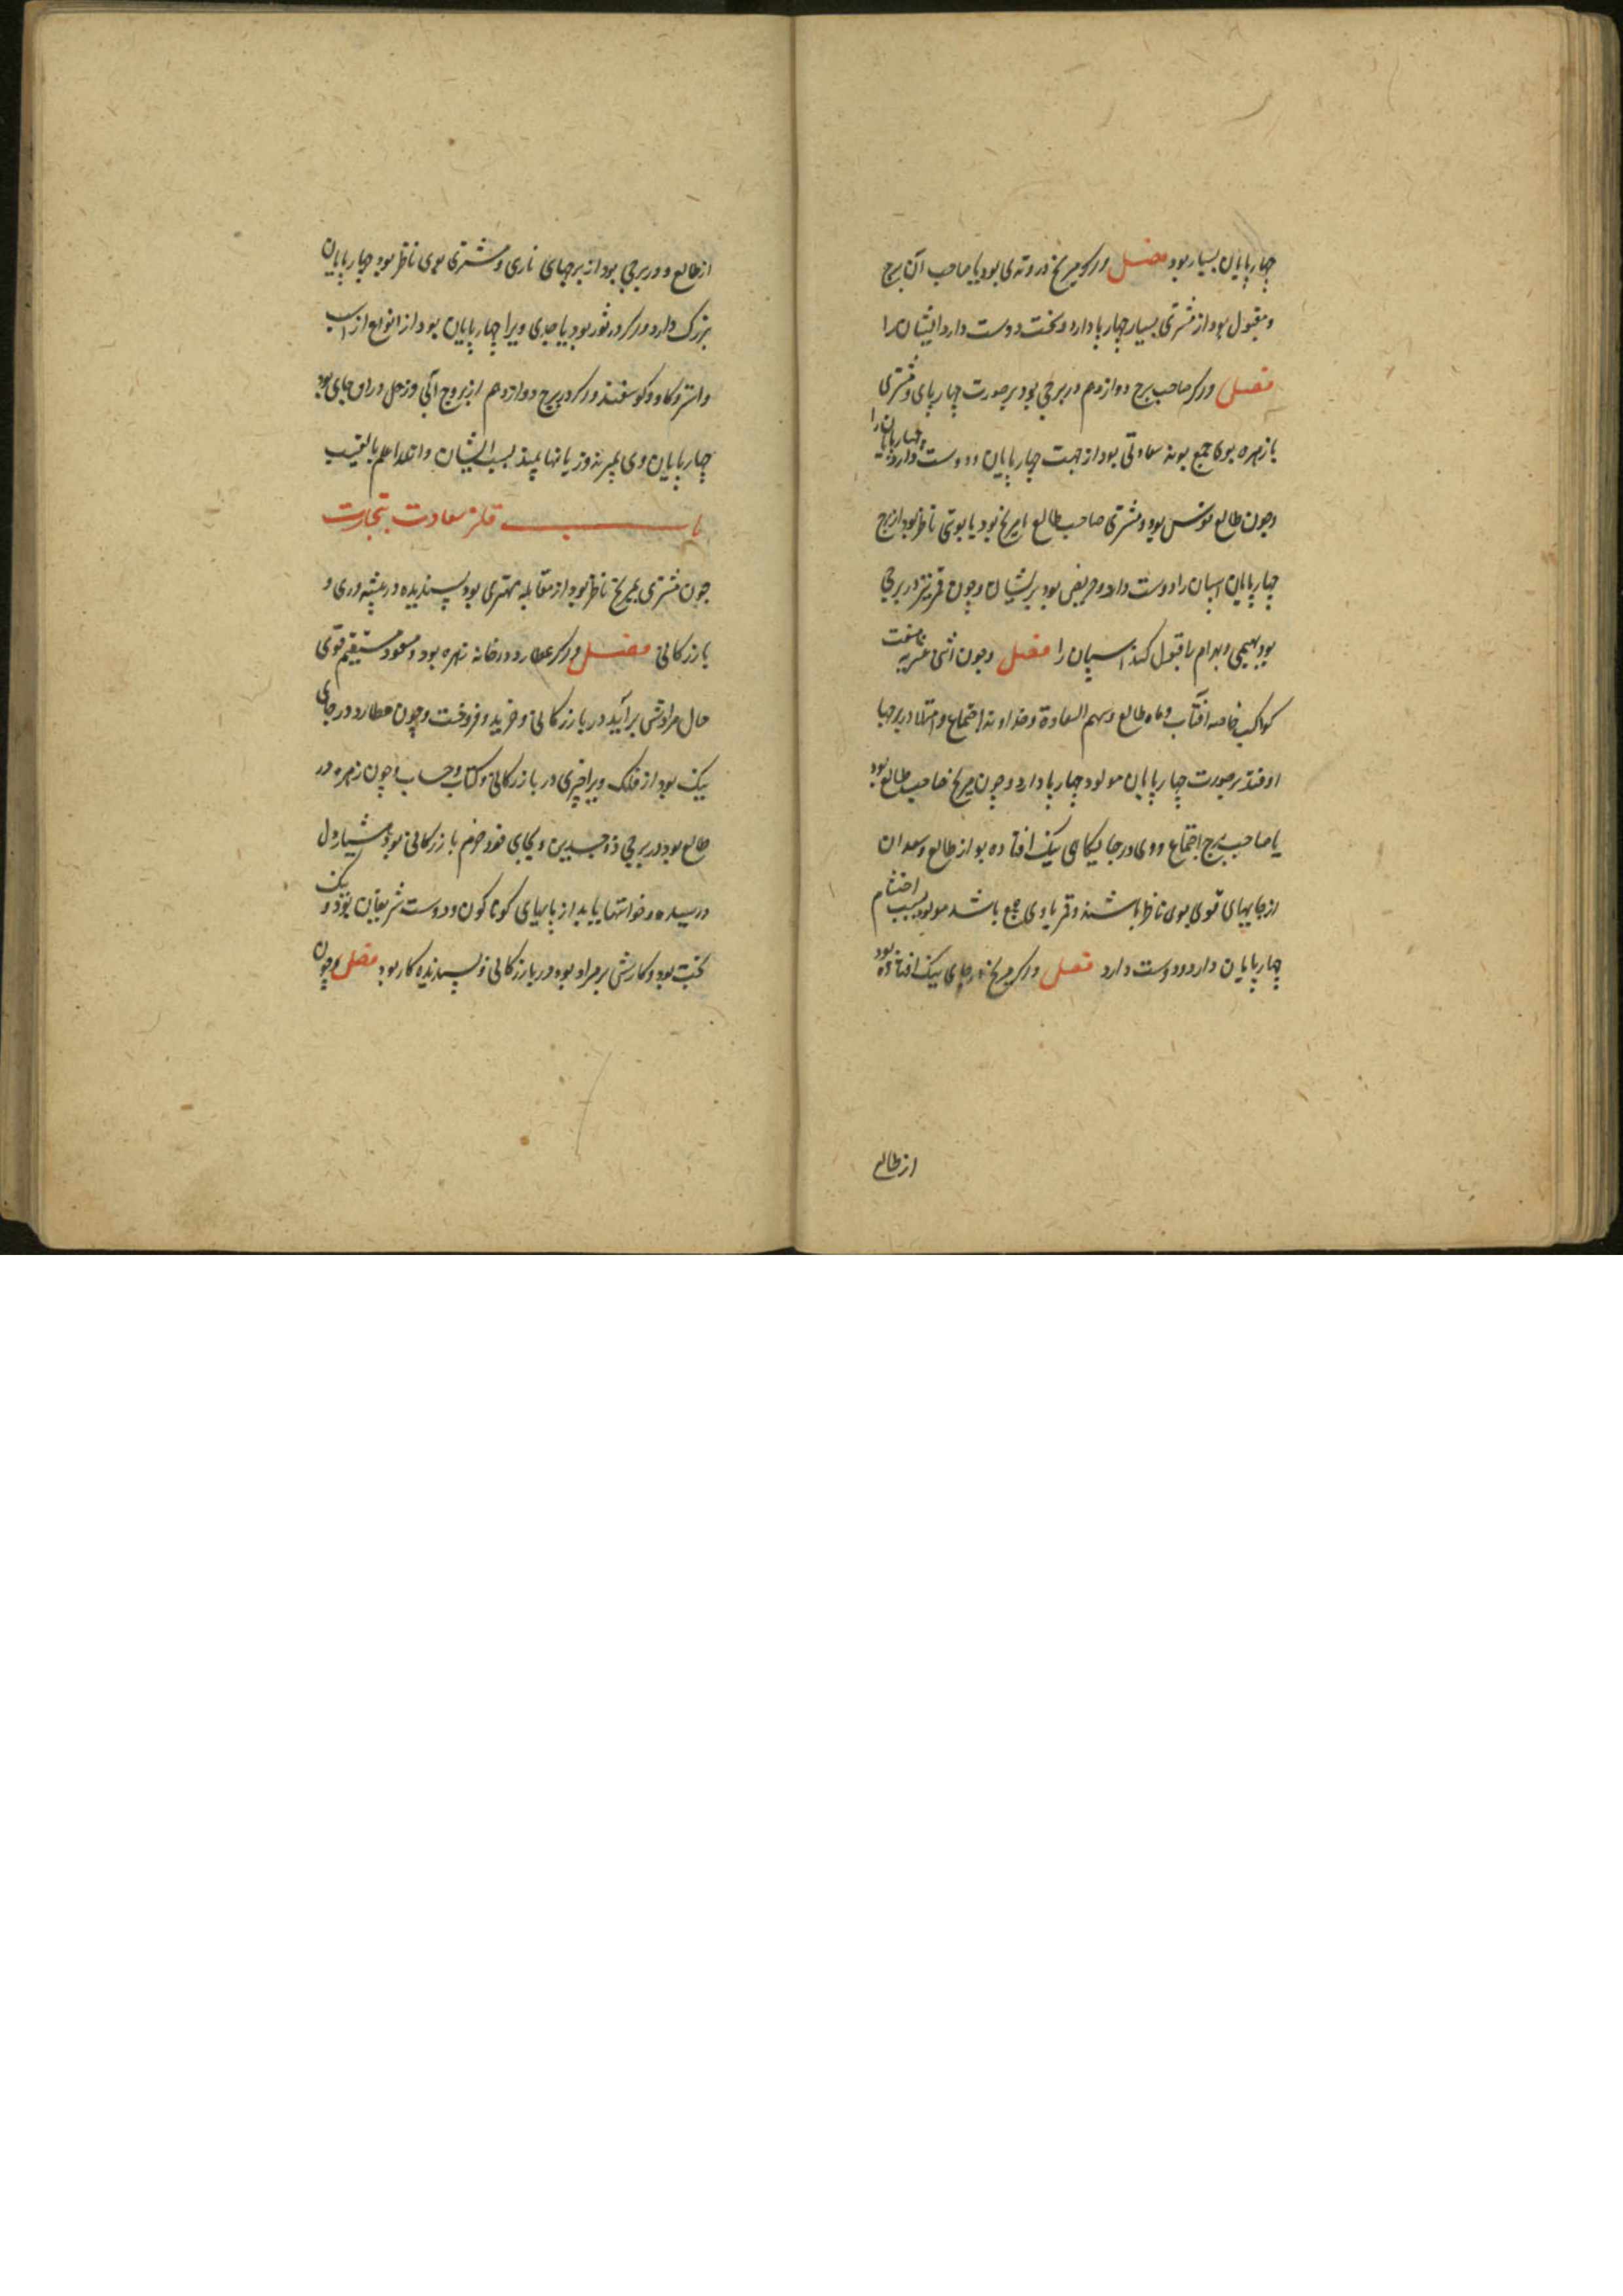 چهارپایان بسیار بود فصل ور مریخ در وتدی بود یا صاحب آن برج
و مقبول بود از مشتری بسیار چهارپا دارد و سخت دوست دارد ایشانرا
فصل وركر صاحب برج دوازدهم در برجی بود بر صورت چهارپای و مشتری
با زهره بوی جمع بوند سعادتی بود از جهت چهارپایان و دوست دارد چهارپایانرا
وچون طالع قوس بود و مشتری صاحب طالع با مریخ بود یا بوی ناظر بود از برج
چهارپایان اسپان را دوست دارد و حریص بود بر ایشان وچون قمر نیز در برجی
بود بهیمی و بهرام را قبول کند اسپان را فصل وچون اثنی عشریه
کواکب خاصه آفتاب و ماه طالع و سهم السعادة و خداوند اجتماع و امتلا در برجها
اوفتد بر صورت چهارپایان مولود چهارپا دارد و چون مریخ صاحب طالع بود
یا صاحب برج اجتماع و وی در جایگاهی نیک افتاده بود از طالع و سعدان
از جایهای قوی بوی ناظر باشند و قمر با وی جمع باشد مولود بسبب احتشام
چهارپایان دارد و دوست دارد فصل وركر مریخ در جای نیک افتاده بود
از طالع
از طالع و در برجی بود از برجهای ناری و مشتری بوی ناظر بود چهارپایان
بزرگ دارد وركر در ثور بود یا جدی ویرا چهارپایان بود از انواع از اسب
واستر وكاو وكوسفند وركر در برج دوازدهم از بروج آبی و زحل در آن جای بود
چهارپایان وی بمیرند و زیانها بیند بسبب ایشان والله اعلم بالغیب
باب سعادت بتجارت
چون مشتری بمریخ ناظر بود از مقابله مهتری بود پسندیده در پیشه‌وری و
بازركانی فصل وركر عطارد در خانه زهره بود و مسعود و مستقیم و قوی
حال مرادش برآید در بازركانی و خرید و فروخت وچون عطارد در جای
نیک بود از فلک ویرا خیری در بازركانی و كتاب و حساب وچون زهره در
طالع بود در برجی ذو جسدین و بجای خود خرم بازركانی بود هشیاردل
و رسیده و خواستها یابد از بابهای كوناكون و دوست شریفان بود و نیک
بخت بود و كارش بر مراد بود در بازركانی و پسندیده كار بود فصل وچون